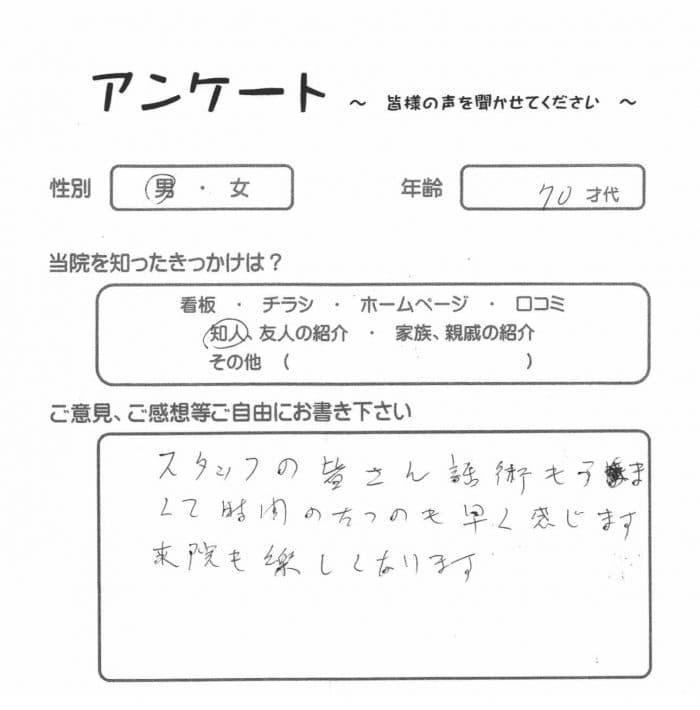 アンケート ～ 皆様の声を聞かせてください ～
性別 男 ・ 女 年齢 70 才代
当院を知ったきっかけは？
看板 ・ チラシ ・ ホームページ ・ 口コミ
知人、友人の紹介 ・ 家族、親戚の紹介
その他 （ ）
ご意見、ご感想等ご自由にお書き下さい
スタッフの皆さん話術もうま
くて時間のたつのも早く感じます
来院も楽しくなります